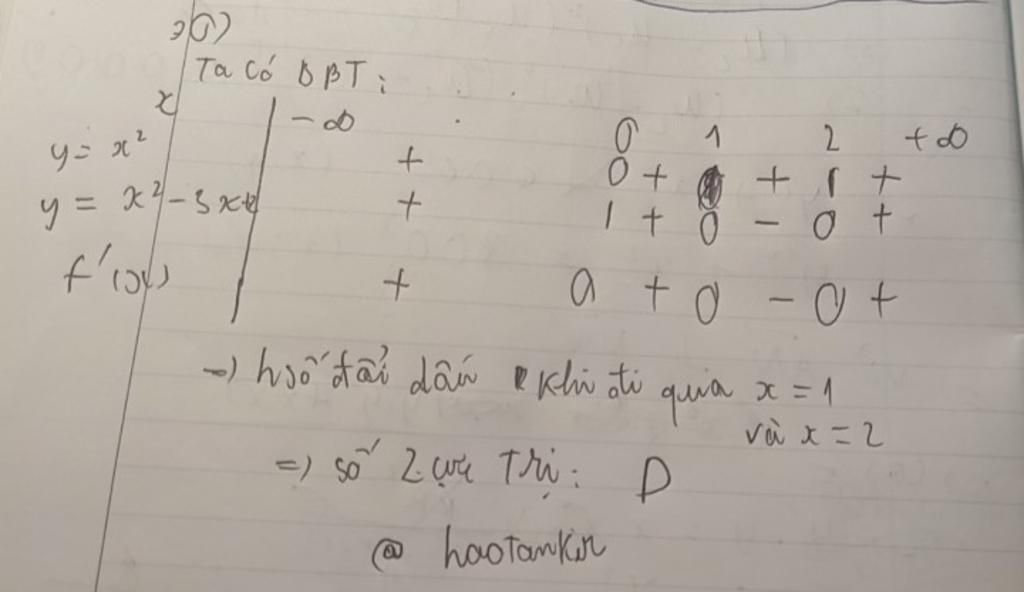 Ta có BBT:
x -∞ 0 1 2 +∞
y = x² + 0 + + 1 +
y = x² - 3x+2 + 1 + 0 - 0 +
f'(x) + 0 + 0 - 0 +
=) hsố đổi dấu khi đi qua x = 1
và x = 2
=) số 2 cực trị: D
@ haotankir